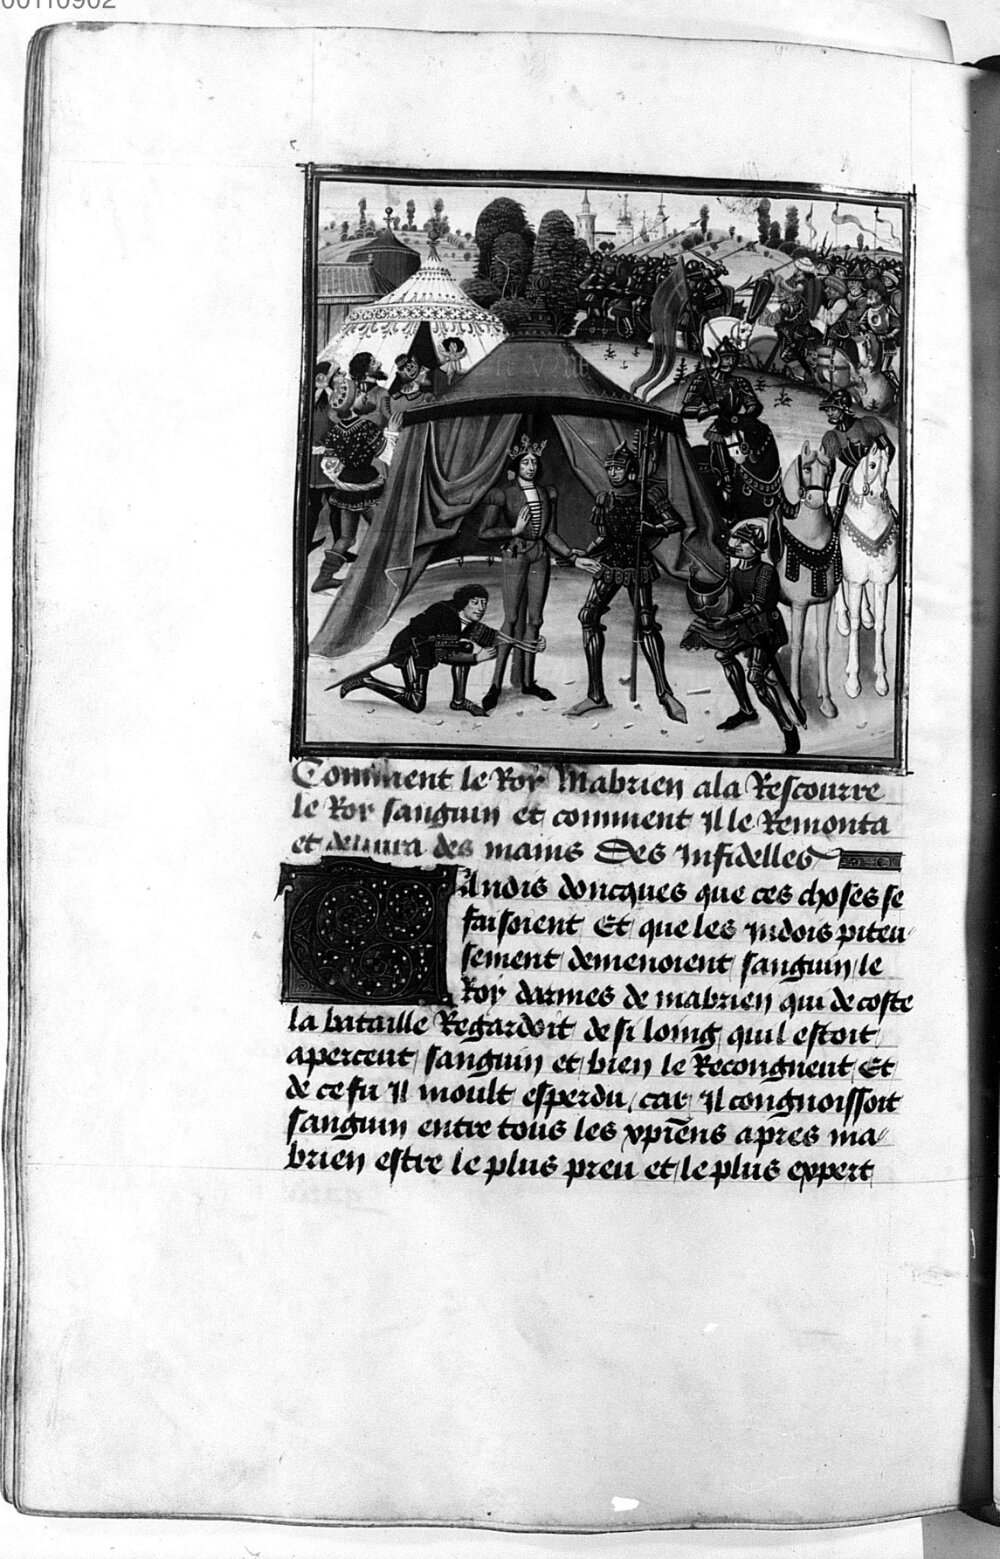 00110902
Comment le Roy Mabrien ala Rescourre
le Roy sanguin et comment Il le Remonta
et deliura des mains Des Infidelles
Andis doncques que ces choses se
faisoient Et que les Indois piteu-
sement demenoient sanguin le
Roy darmes de mabrien qui de coste
la bataille Regardoit de si loing quil estoit
aperceut sanguin et bien le Recongneut Et
de ce fu Il moult esperdu, car Il congnoissoit
sanguin entre tous les xp̄iens apres ma-
brien estre le plus preu et le plus expert